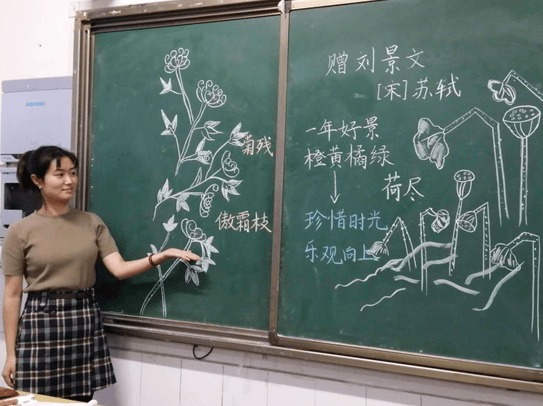 赠刘景文
[宋]苏轼
一年好景
橙黄橘绿
珍惜时光
乐观向上
荷尽
菊残
傲霜枝